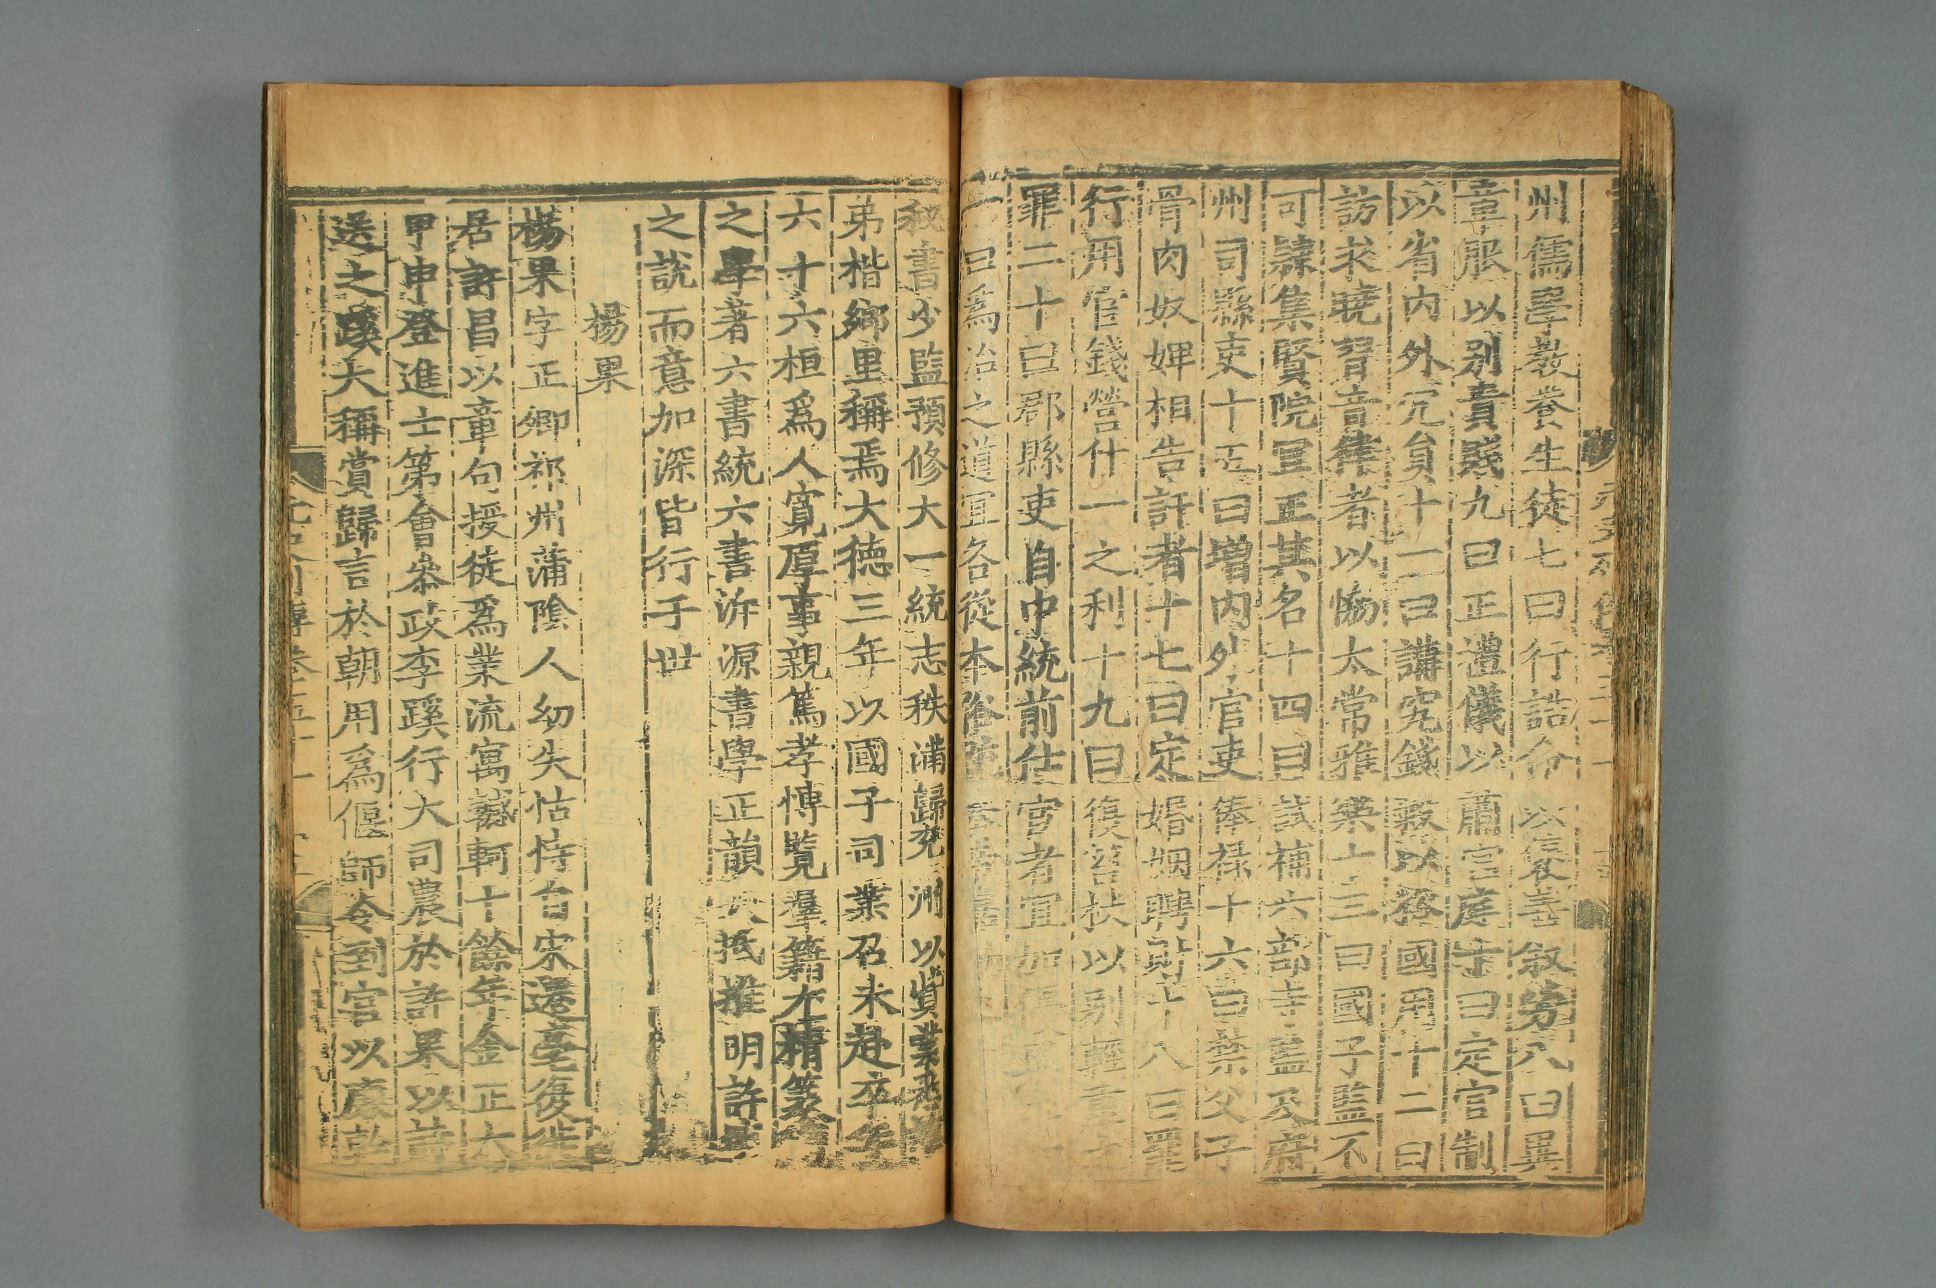 州儒學教養生徒七曰行誥命以褒善叙勞八曰異
章服以別貴賤九曰正禮儀以肅宮庭十曰定官制
以省內外冗員十一曰講究錢穀以裕國用十二曰
訪求曉習音律者以協太常雅樂十三曰國子監不
可隸集賢院宜正其名十四曰試補六部寺監及府
州司縣吏十五曰增內外官吏俸祿十六曰禁父子
骨肉奴婢相告訐者十七曰定婚姻聘財十八曰罷
行用官錢營什一之利十九曰復笞杖以別輕重
罪二十曰郡縣吏自中統前仕宦者宜加
一曰爲治之道宜各從本俗
秘書少監預修大一統志秩滿歸兗州以貲業
弟楷鄉里稱焉大德三年以國子司業召未赴卒年
六十六桓爲人寬厚事親篤孝博覽羣籍尤精篆籀
之學著六書統六書泝源書學正韻大抵推明許
之說而意加深皆行于世
楊果
楊果字正卿祁州蒲陰人幼失怙恃自宋遷亳復徙
居許昌以章句授徒爲業流寓轗軻十餘年金正大
甲申登進士第會參政李蹊行大司農於許果以詩
送之蹊大稱賞歸言於朝用爲偃師令到官以廉幹